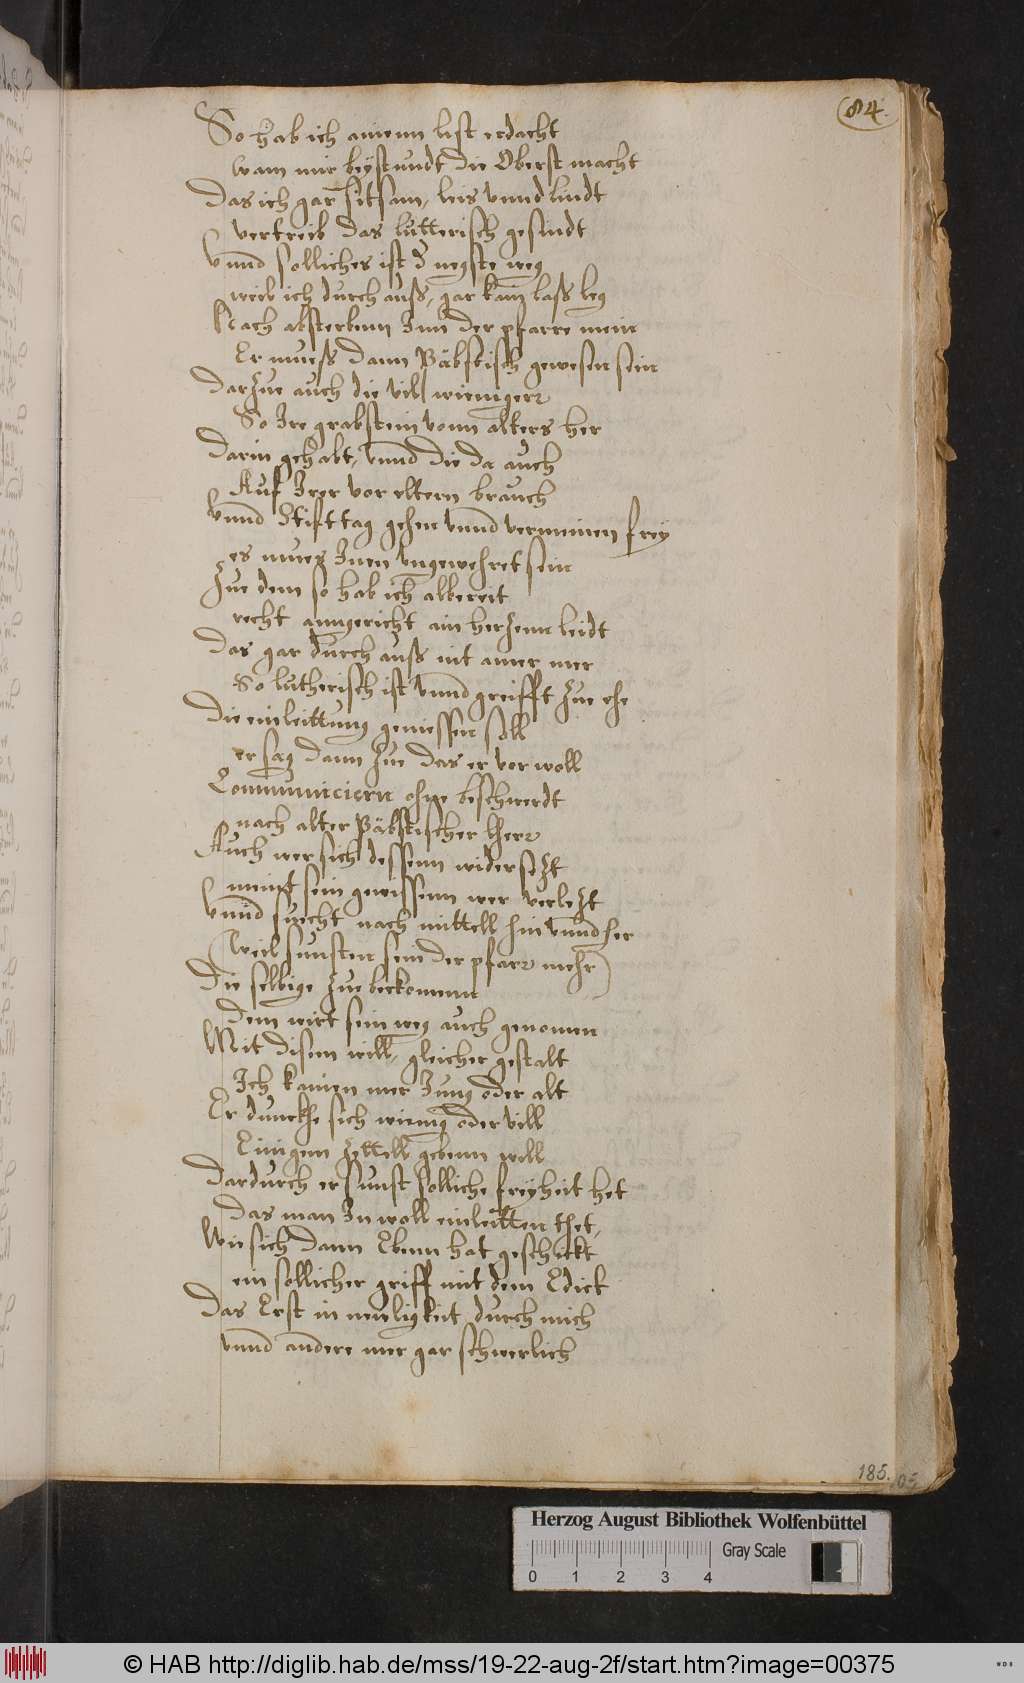 84.
So hab ich ainenn list erdacht
Wann mir beystundt die Oberst macht
Das ich gar sitsam, leis vnnd lindt
vertreib das lutterisch gesindt
Vnnd solliches ist d negste weg
weil ich durch auß, gar kain laß leg
Nach absterbenn Inn der pfarre mein
Er mueß dann Päbstisch gewesen sein
Darzue auch die vill weniger
So Ire grabstein vonn alters her
Darin gehabt, vnnd die da auch
Auf Irer vor eltern brauch
Vnnd Stifttag gehen vnnd vermeinen frey
es mues Inen vngewehret sein
Zue dem so hab ich albereit
recht anngericht ain herzenn leidt
Das gar durch auß nit ainer mer
So lutherisch ist vnnd greifft zue ehe
Die einleittung geniessen soll
er sag dann zue das er vor woll
Communiciern ohne beschwerdt
nach alter Päbstischer lherr
Auch wer sich dessenn widersezt
meint sein gewissenn wer verlezt
Vnnd suecht nach mittell hin vnnd her
(Weil sunsten sein der pfarr mehr)
Die selbige zue bekomenn
Dem wirt sein weg auch genomen
Mit disem will, gleicher gestalt
Ich kainen mer Jung oder alt
Er dunckhe sich wenig oder vill
Einigen zettell gebenn will
Dardurch er sunst solliche freyheit het
Das man In woll einleitten thet,
Wie sich dann Ebenn hat geschickt
ein sollicher griff mit dem Edict
Das Erst in neuligkeit durch mich
vnnd andere mer gar schwerlich
185.
Herzog August Bibliothek Wolfenbüttel
Gray Scale
0 1 2 3 4
© HAB http://diglib.hab.de/mss/19-22-aug-2f/start.htm?image=00375